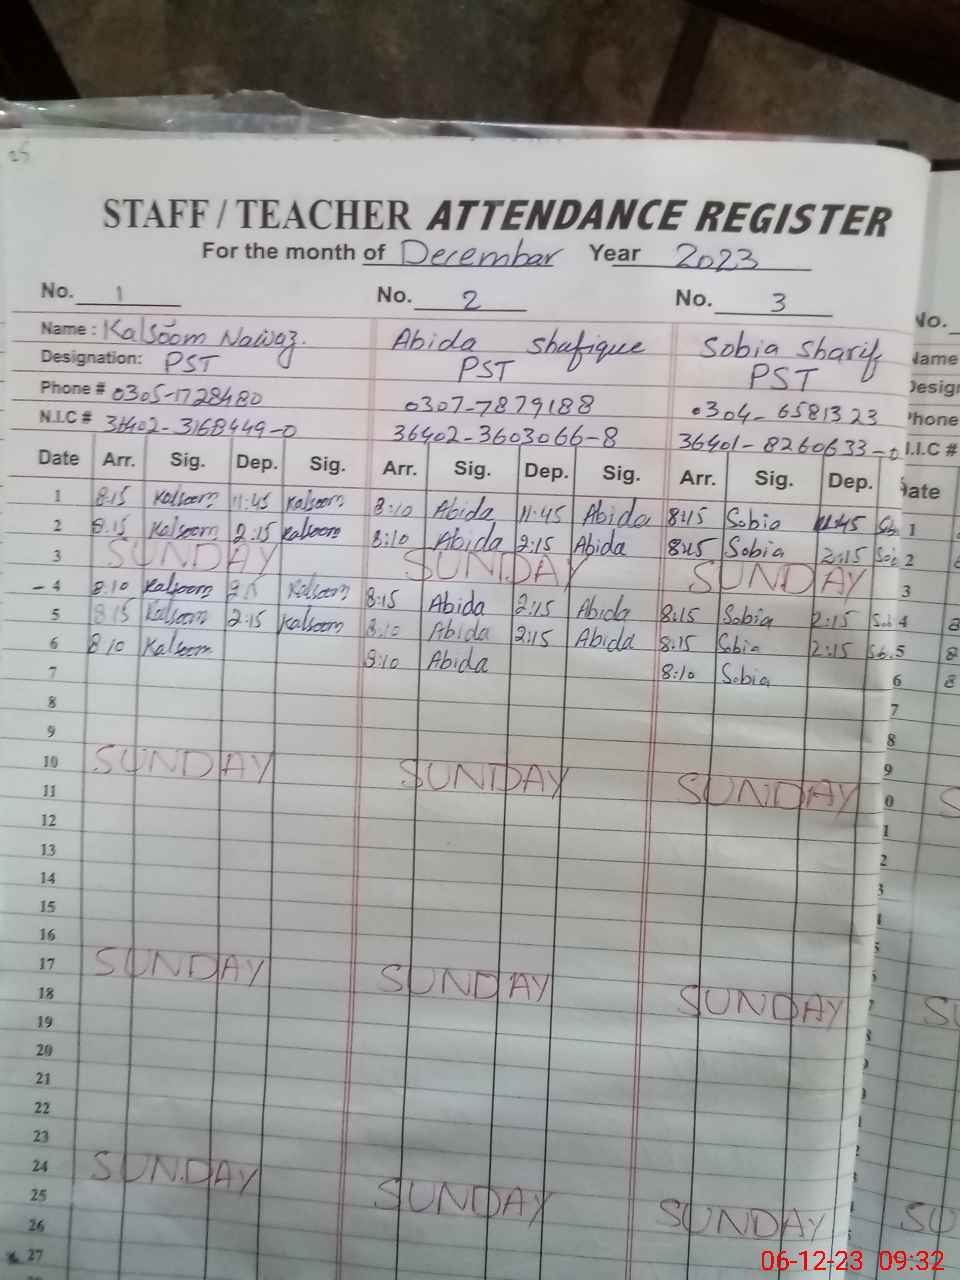 25
STAFF / TEACHER ATTENDANCE REGISTER
For the month of Decembar Year 2023
No. 1 No. 2 No. 3
Name : Kalsoom Nawaz. Abida shafique Sobia Sharif
Designation: PST PST PST
Phone # 0305-1728480 0307-7879188 0304-6581323
N.I.C # 36402-3168449-0 36402-3603066-8 36401-8260633-0
Date Arr. Sig. Dep. Sig. Arr. Sig. Dep. Sig. Arr. Sig. Dep.
1 8:15 Kalsoom 11:45 Kalsoom 8:10 Abida 11:45 Abida 8:15 Sobia 11:45 Sob
2 8:15 Kalsoom 2:15 Kalsoom 8:10 Abida 2:15 Abida 8:15 Sobia 2:15 Sob
3 SUNDAY SUNDAY SUNDAY
4 8:10 Kalsoom Kalsoom 8:15 Abida 2:15 Abida 8:15 Sobia 2:15 Sob
5 8:15 Kalsoom 2:15 Kalsoom 8:10 Abida 2:15 Abida 8:15 Sobia 2:15 Sb.
6 8:10 Kalsoom 8:10 Abida 8:10 Sobia
7
8
9
10 SUNDAY SUNDAY SUNDAY
11
12
13
14
15
16
17 SUNDAY SUNDAY SUNDAY
18
19
20
21
22
23
24 SUNDAY SUNDAY SUNDAY
25
26
27
No.
Name
Desig
Phone
N.I.C #
Date
1
2
3
4 8
5 8
6 8
7
8
9
SU
06-12-23 09:32